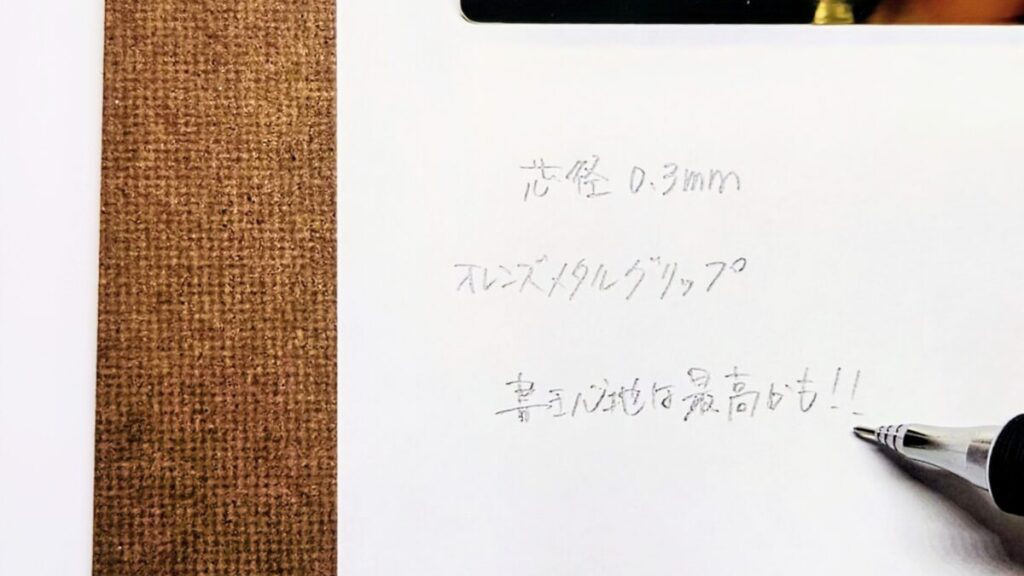 芯径 0.3mm
オレンズメタルグリップ
書き心地は最高かも!!